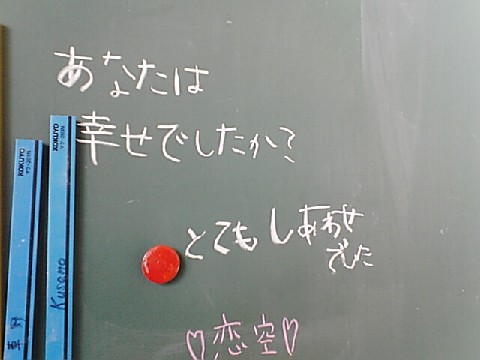 あなたは
幸せでしたか?
とても しあわせ
でした
♡恋空♡
KOKUYO
KOKUYO
Kusano